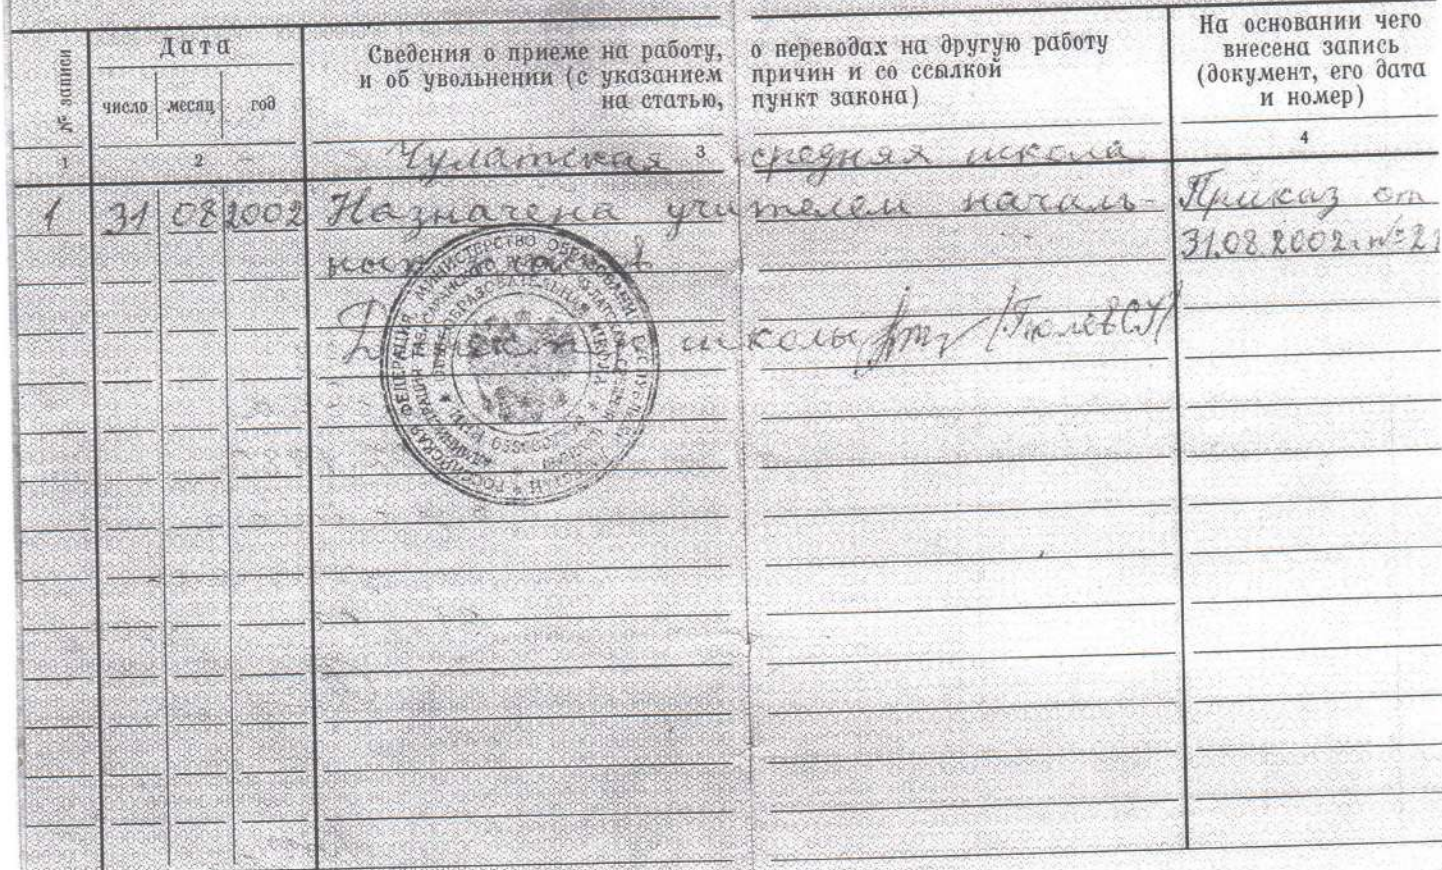 № записи
Дата
число месяц год
Сведения о приеме на работу, о переводах на другую работу
и об увольнении (с указанием причин и со ссылкой
на статью, пункт закона)
На основании чего
внесена запись
(документ, его дата
и номер)
1 2 3 4
Чулатская средняя школа
1 31 08 2002 Назначена учителем началь- Приказ от
31.08.2002г. №21
ных
школы
РОССИЙСКАЯ ФЕДЕРАЦИЯ МИНИСТЕРСТВО ОБРАЗОВАНИЯ